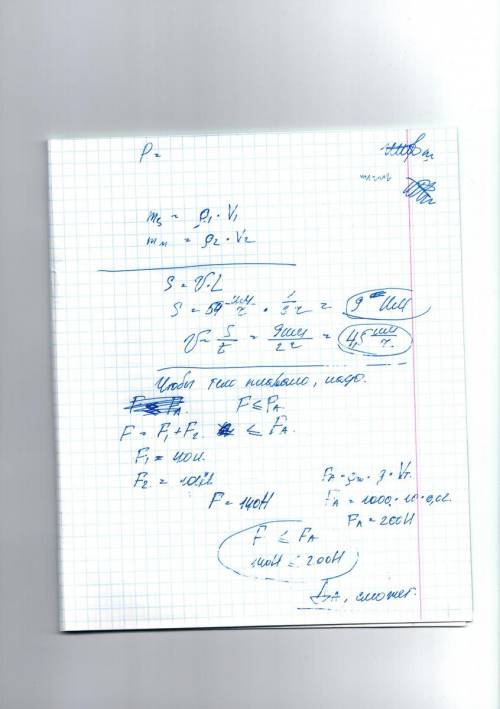 P =
m₃ = ρ₁ · V₁
mм = ρ₂ · V₂
S = V · t
S = 54 км/ч · 1/6 ч = 9 км
V = S/t = 9 км/2ч = 4,5 км/ч
Чтобы тело плавало, надо.
F ≤ Fₐ
F ≤ Fₐ.
F = F₁ + F₂ ≤ Fₐ.
F₁ = 40н.
F₂ = 100н
F = 140Н
Fₐ = ρж · g · Vт.
Fₐ = 1000 · 10 · 0,02
Fₐ = 200Н
F ≤ Fₐ
140Н ≤ 200Н
Да, сможет.